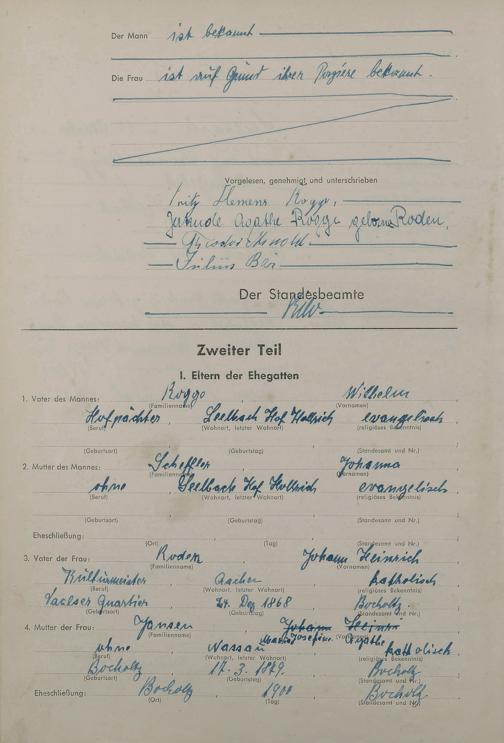 Der Mann ist bekannt
Die Frau ist auf Grund ihrer Papiere bekannt.
Vorgelesen, genehmigt und unterschrieben
Fritz Klemens Rogge,
Agathe Rogge geborene Roden,
Julius
Der Standesbeamte
Zweiter Teil
I. Eltern der Ehegatten
1. Vater des Mannes: Rogge Wilhelm
(Familienname) (Vornamen)
Hofpächter, Seelbach Hof Hollrich evangelisch
(Beruf) (Wohnort, letzter Wohnort) (religiöses Bekenntnis)
(Geburtsort) (Geburtstag) (Standesamt und Nr.)
2. Mutter des Mannes: Scheffler Johanna
(Familienname) (Vornamen)
ohne Seelbach Hof Hollrich evangelisch
(Beruf) (Wohnort, letzter Wohnort) (religiöses Bekenntnis)
(Geburtsort) (Geburtstag) (Standesamt und Nr.)
Eheschließung:
(Ort) (Tag) (Standesamt und Nr.)
3. Vater der Frau: Roden Johann Heinrich
(Familienname) (Vornamen)
Aachen katholisch
(Beruf) (Wohnort, letzter Wohnort) (religiöses Bekenntnis)
Vaalser Quartier 24. Dez 1868 Bocholtz
(Geburtsort) (Geburtstag) (Standesamt und Nr.)
4. Mutter der Frau: Jansen Johann Heinri
(Familienname) Maria Josefine Agathe (Vornamen)
ohne Nassau katholisch
(Beruf) (Wohnort, letzter Wohnort) (religiöses Bekenntnis)
Bocholtz 17. 3. 1879. Bocholtz
(Geburtsort) (Geburtstag) (Standesamt und Nr.)
Eheschließung: Bocholtz 1900 Bocholtz
(Ort) (Tag) (Standesamt und Nr.)